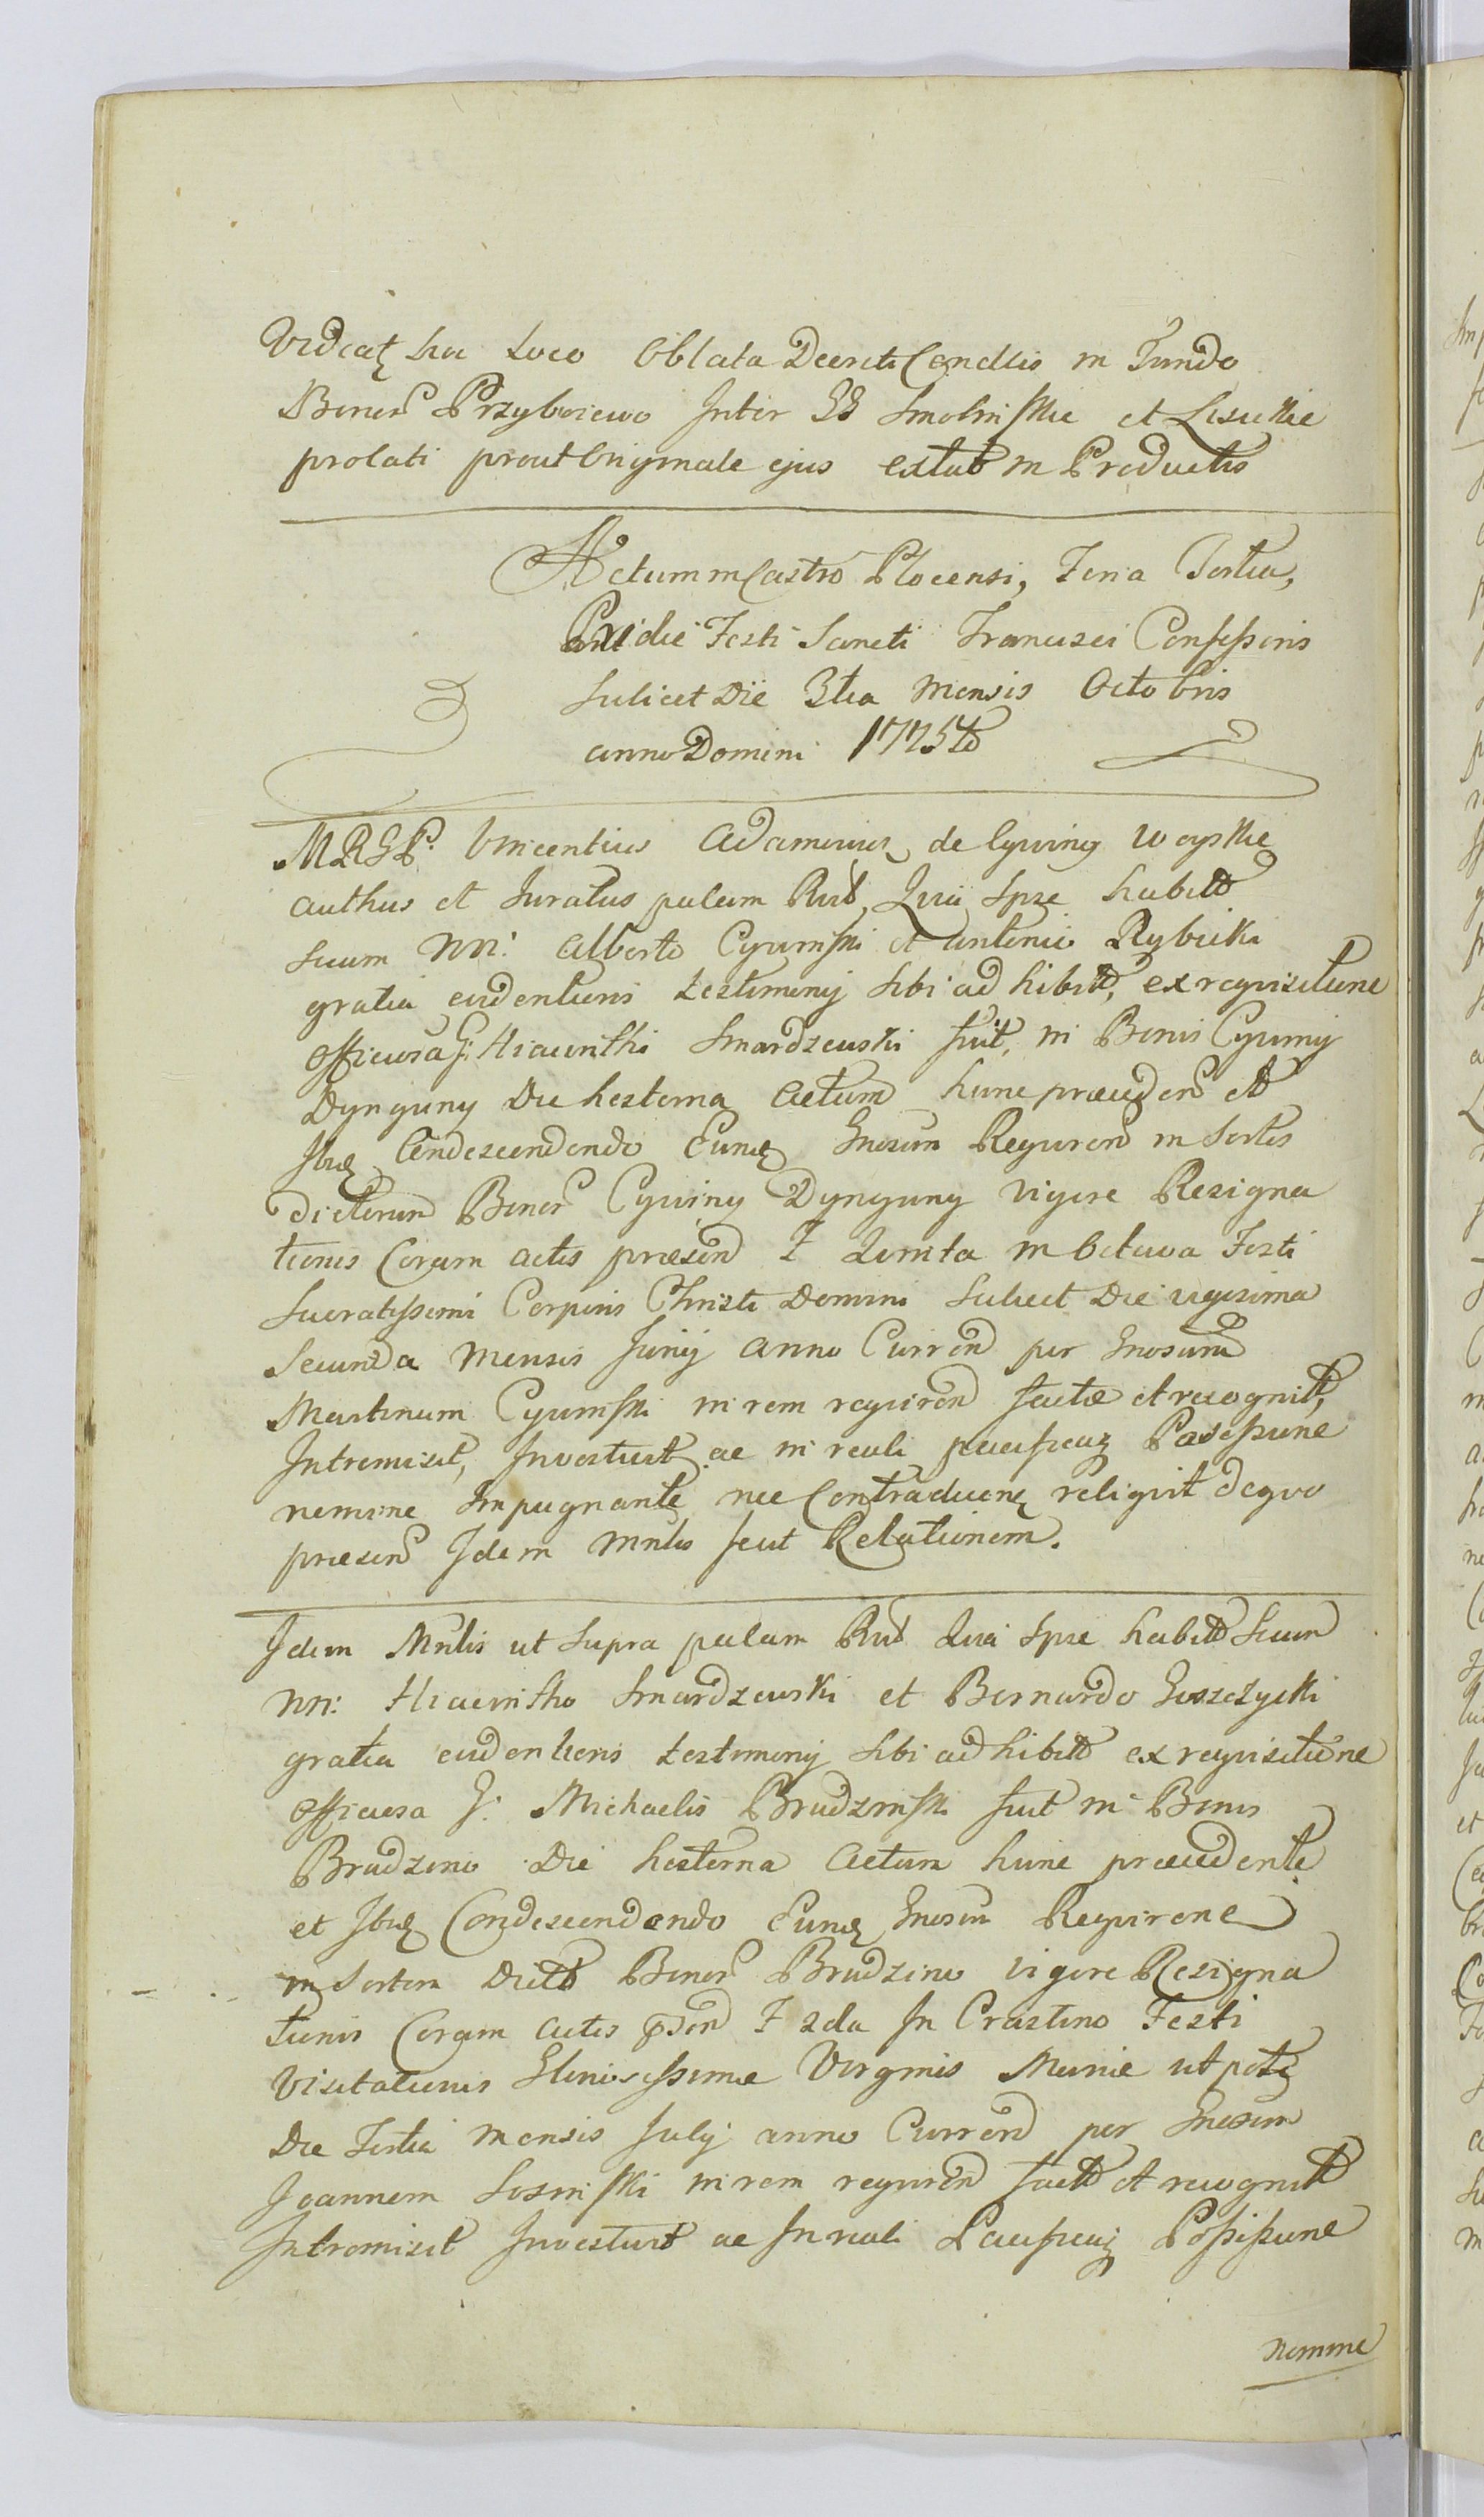 Videat hoc Loco Oblata Decreti Condlis in Fundo
Bonor Przyborewo Inter GG Smolinskie et Lisickie
prolati prout Originale ejus extat in Productis
Actum in Castro Plocensi, Feria Tertia,
Pridie Festi Sancti Francisci Confessoris
Scilicet Die 3tia Mensis Octobris
anno Domini 1775to
MRGP. Vincentius Adamowicz de Cywiny Woyskie
authus et Juratus palam Rvit, Quia Ipse habitt
secum NN: Alberto Cywinski et Antonio Rybicki
gratia evidentioris testimonij sibi adhibitt, ex requisitione
officiosa G: Hiacinthi Smardzewski fuit, in Bonis Cywiny
Dynguny Die hesterna Actum hunc præceden et
Ibiq Condescendendo Eundq Gnosum Requiren in Sortes
dictorum Bonor Cywiny Dynguny vigore Resigna
tionis Coram actis præsen F Quinta in Octava Festi
Sacratissimi Corporis Christi Domini Scilicet Die vigesima
Secunda Mensis Junij anno Curren per Gnosum
Martinum Cywinski in rem requiren factæ et recognitt,
Intromisit, Investivit ac in reali pacificaq Possessione
nemine Impugnante nec Contradicenq reliquit de quo
præsen Idem Mnlis fecit Relationem.
Idem Mnlis ut Supra palam Rvit Quia Ipse habitt Secum
NN: Hiacintho Smardzewski et Bernardo Goszczycki
gratia evidentioris testimonij sibi adhibitt ex requisitione
officiosa G: Michaelis Brudzinski fuit in Bonis
Brudzino Die hesterna Actum hunc præcedente
et Ibiq Condescendendo Eundq Gnosum Requirene
in Sortem Dictt Bonor Brudzino vigore Resigna
tionis Coram actis pden F 2da In Crastino Festi
Visitationis Glorisissimæ Virginis Mariæ ut pote
Die Tertia Mensis Julij anno Curren per Gnosum
Joannem Sosinski in rem requiren factt et recognitt
Intromisit Investivit ac In reali Pacificaq Possessione
nemine